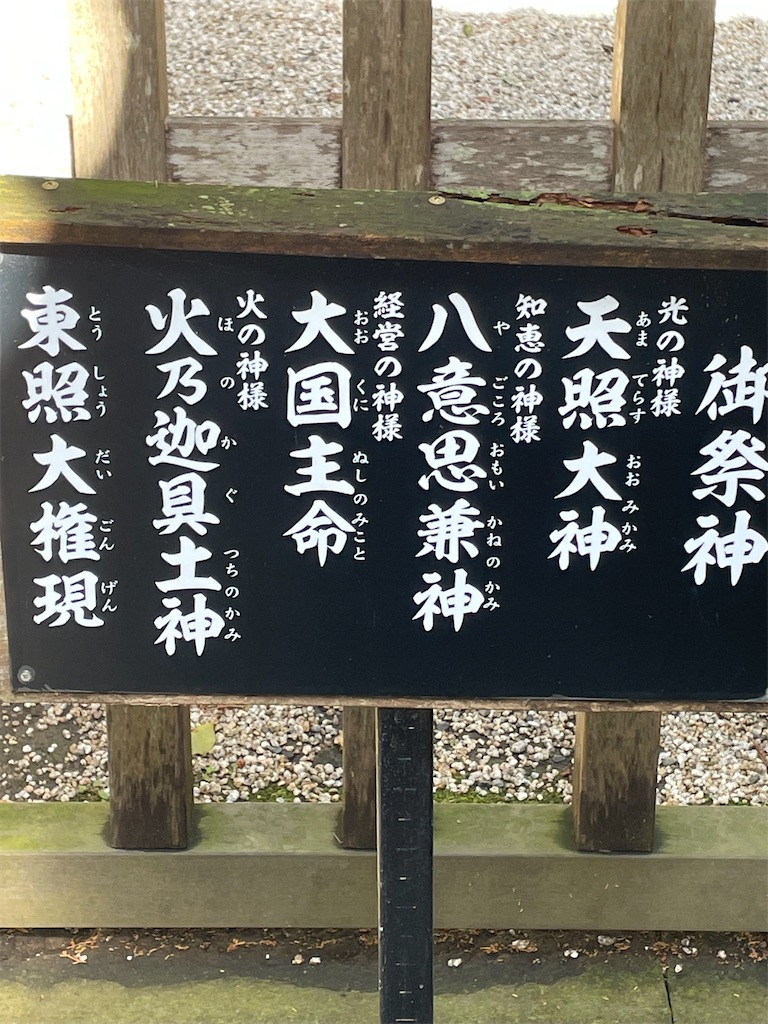 御祭神
光の神様
天照大神
あま てらす おお みかみ
知恵の神様
八意思兼神
や ごころ おもい かねの かみ
経営の神様
大国主命
おお くに ぬしのみこと
火の神様
火乃迦具土神
ほ の か ぐ つちのかみ
東照大権現
とう しょう だい ごん げん